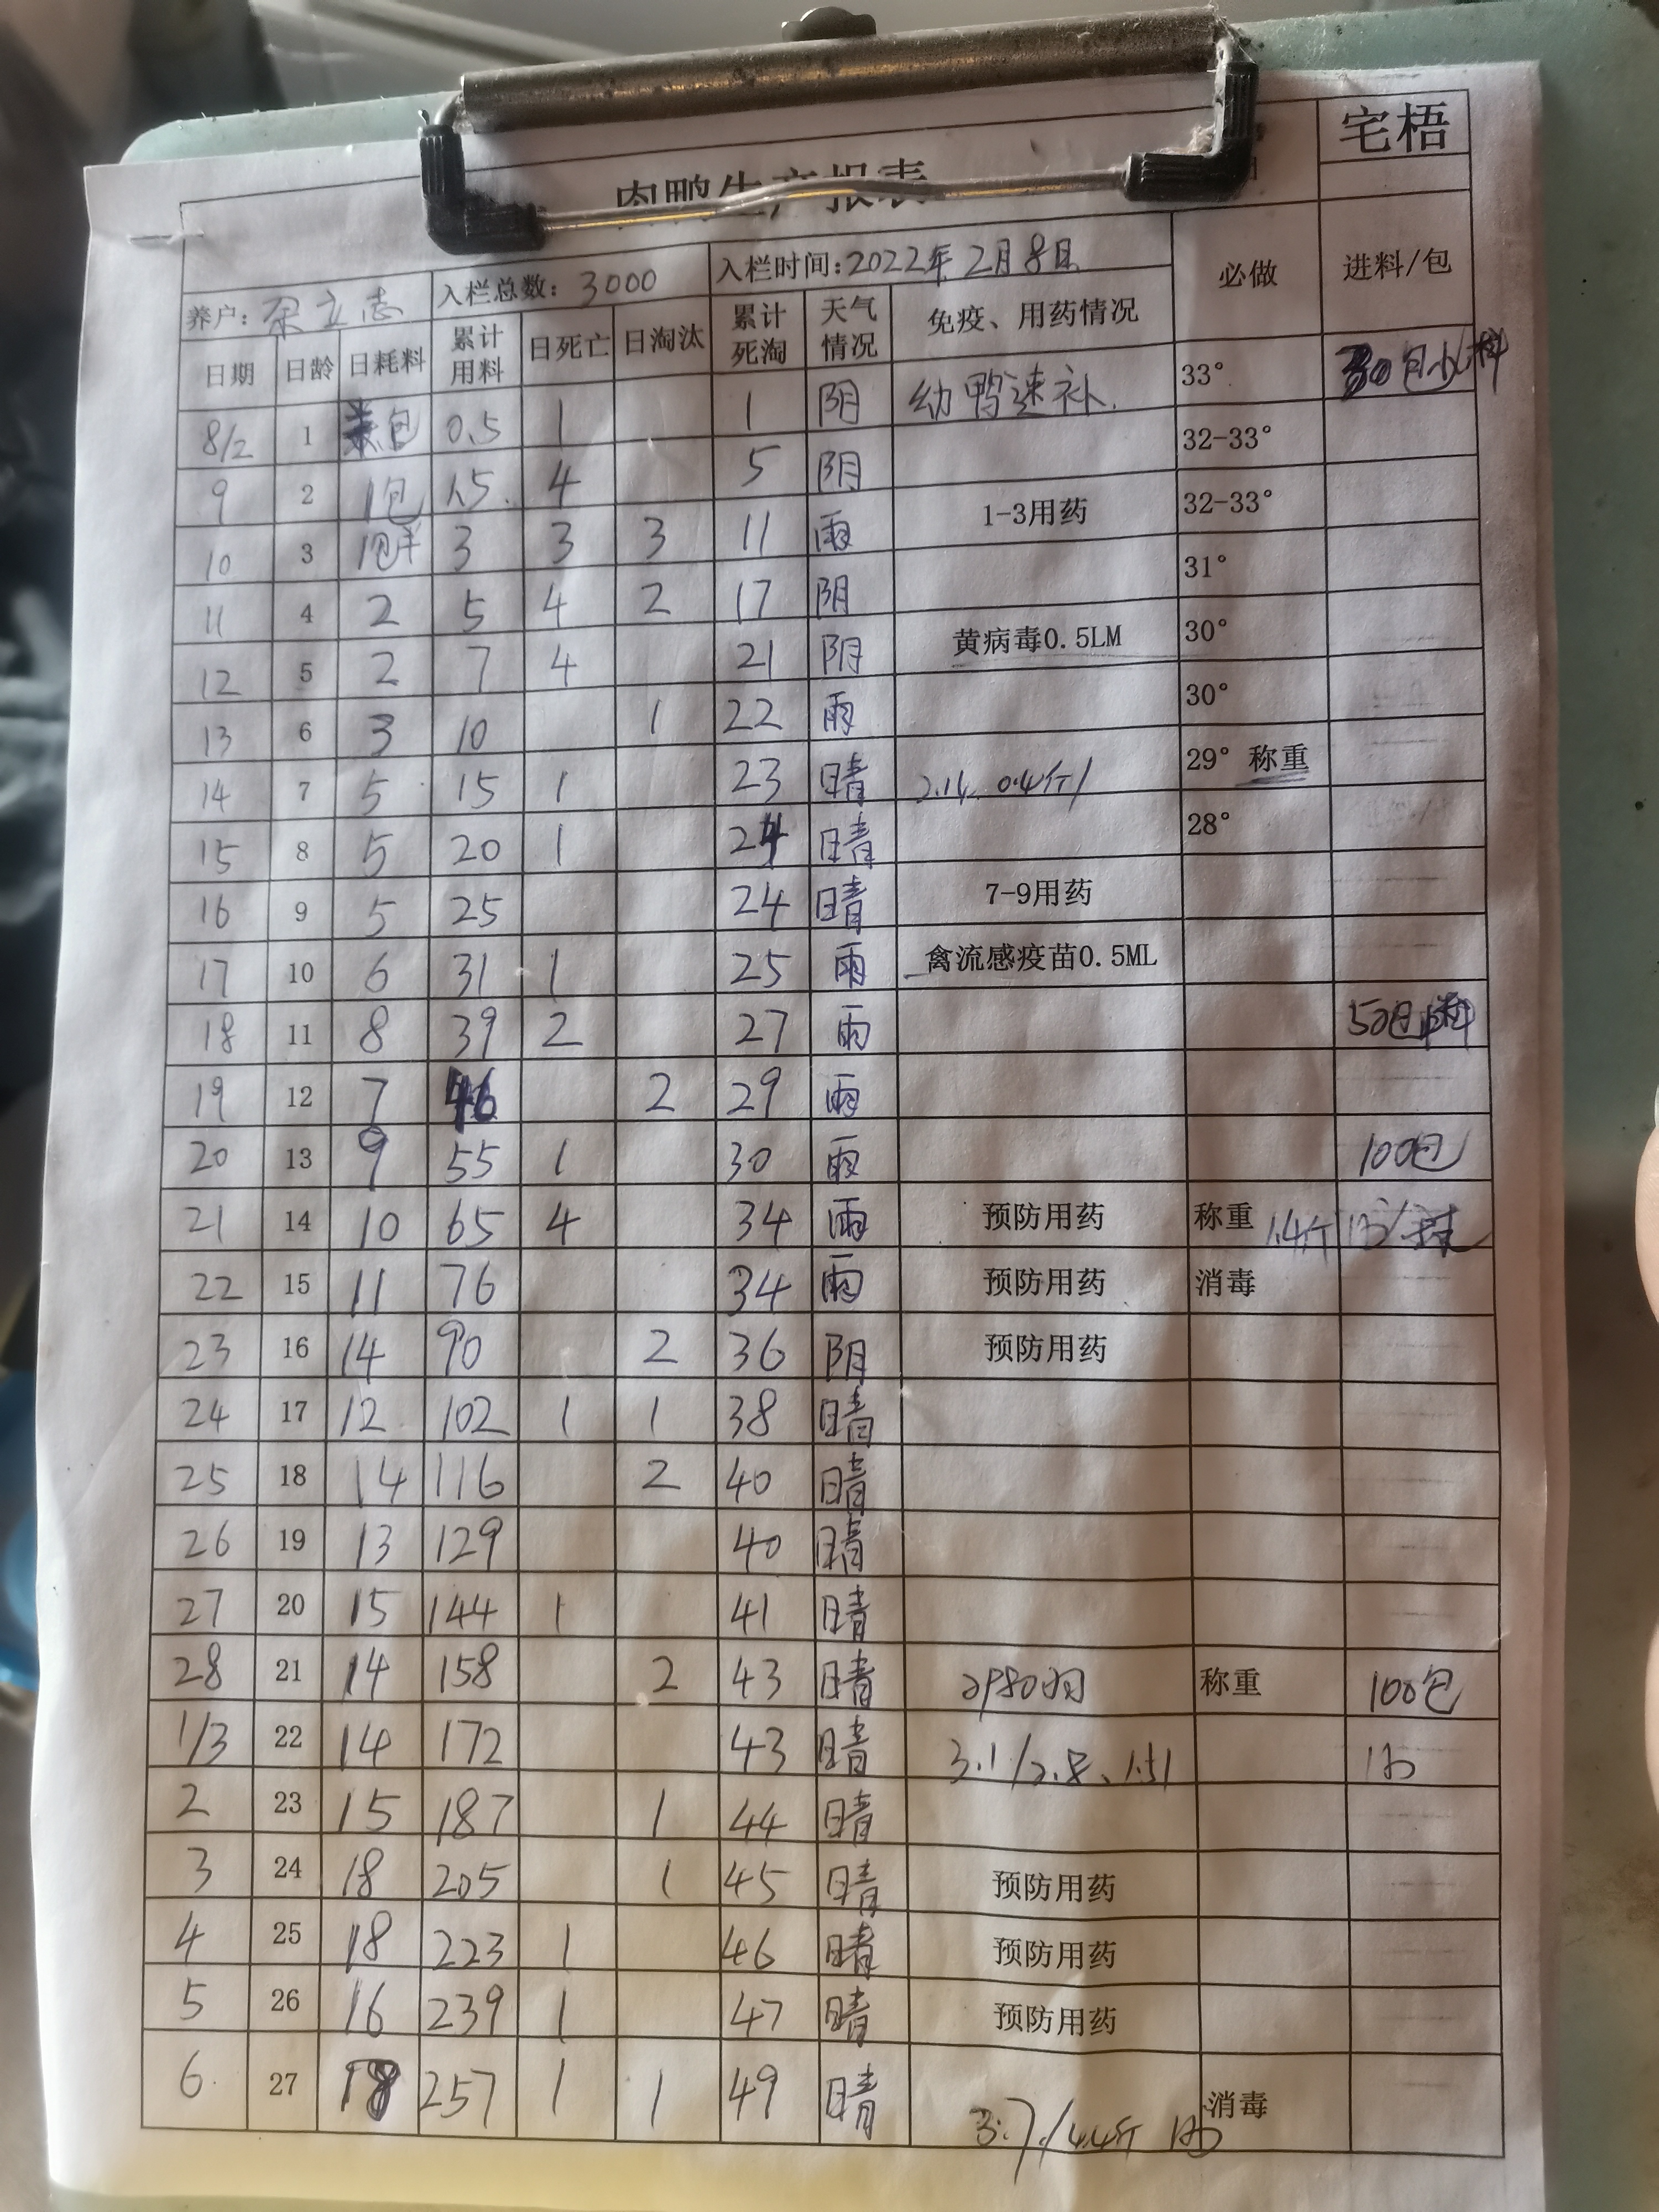 宅梧
肉鸭生产报表
养户: 入栏总数: 3000 入栏时间:2022年2月8日 必做 进料/包
日期 日龄 日耗料 累计用料 日死亡 日淘汰 累计死淘 天气情况 免疫、用药情况
8/2 1 包 0.5 1 1 阴 幼鸭速补. 33° 30包小料
9 2 1包 1.5. 4 5 阴 32-33°
10 3 1包半 3 3 3 11 雨 1-3用药 32-33°
11 4 2 5 4 2 17 阴 31°
12 5 2 7 4 21 阴 黄病毒0.5LM 30°
13 6 3 10 1 22 雨 30°
14 7 5 15 1 23 晴 2.14 0.4斤/ 29° 称重
15 8 5 20 1 24 晴 28°
16 9 5 25 24 晴 7-9用药
17 10 6 31 1 25 雨 禽流感疫苗0.5ML
18 11 8 39 2 27 雨 50包
19 12 7 46 2 29 雨
20 13 9 55 1 30 雨 100包
21 14 10 65 4 34 雨 预防用药 称重 1.4斤
22 15 11 76 34 雨 预防用药 消毒
23 16 14 90 2 36 阴 预防用药
24 17 12 102 1 1 38 晴
25 18 14 116 2 40 晴
26 19 13 129 40 晴
27 20 15 144 1 41 晴
28 21 14 158 2 43 晴 2980羽 称重 100包
1/3 22 14 172 43 晴 3.1/2.8、1.51
2 23 15 187 1 44 晴
3 24 18 205 1 45 晴 预防用药
4 25 18 223 1 46 晴 预防用药
5 26 16 239 1 47 晴 预防用药
6 27 18 257 1 1 49 晴 3.7/4.4斤 消毒